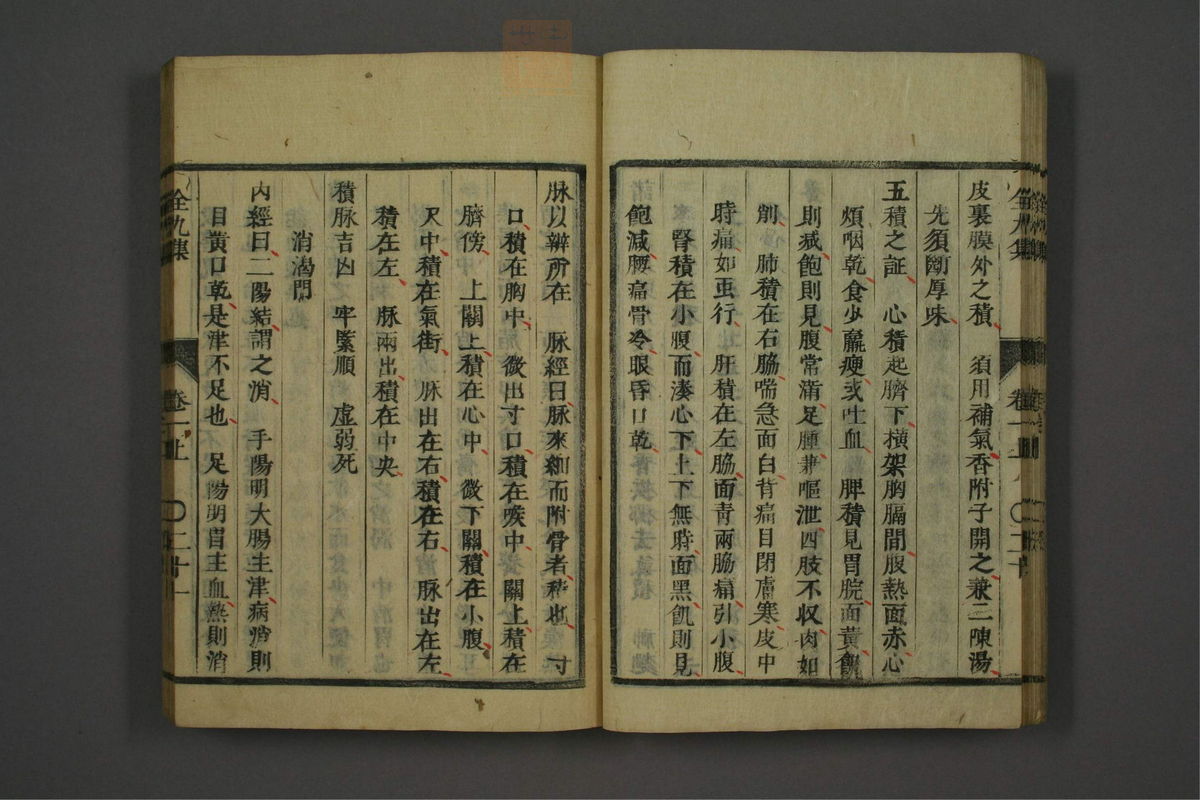 皮裏膜外之積　須用補氣香附子開之兼二陳湯
先須斷厚味
五積之証　心積起臍下橫架胸膈間腹熱面赤心
煩咽乾食少羸瘦或吐血　脾積見胃脘面黃飢
則減飽則見腹常滿足腫兼嘔泄四肢不収肉如
削　肺積在右脇喘急面白背痛目閉膚寒皮中
時痛如虫行　肝積在左脇面青兩脇痛引小腹
腎積在小腹而湊心下上下無時面黑飢則見
飽減腰痛骨冷眼昏口乾
全九集　卷一上　〇二十
脉以辨所在　脉經曰脉來細而附骨者積也　寸
口積在胸中　微出寸口積在喉中　關上積在
臍傍　上關上積在心中　微下關積在小腹
尺中積在氣街　脉出在右積在右　脉出在左
積在左　脉兩出積在中央
積脉吉凶　牢緊順　虛弱死
消渴門
內經曰二陽結謂之消　手陽明大腸主津病消則
目黃口乾是津不足也　足陽明胃主血熱則消
全九集　卷一上　〇二十一